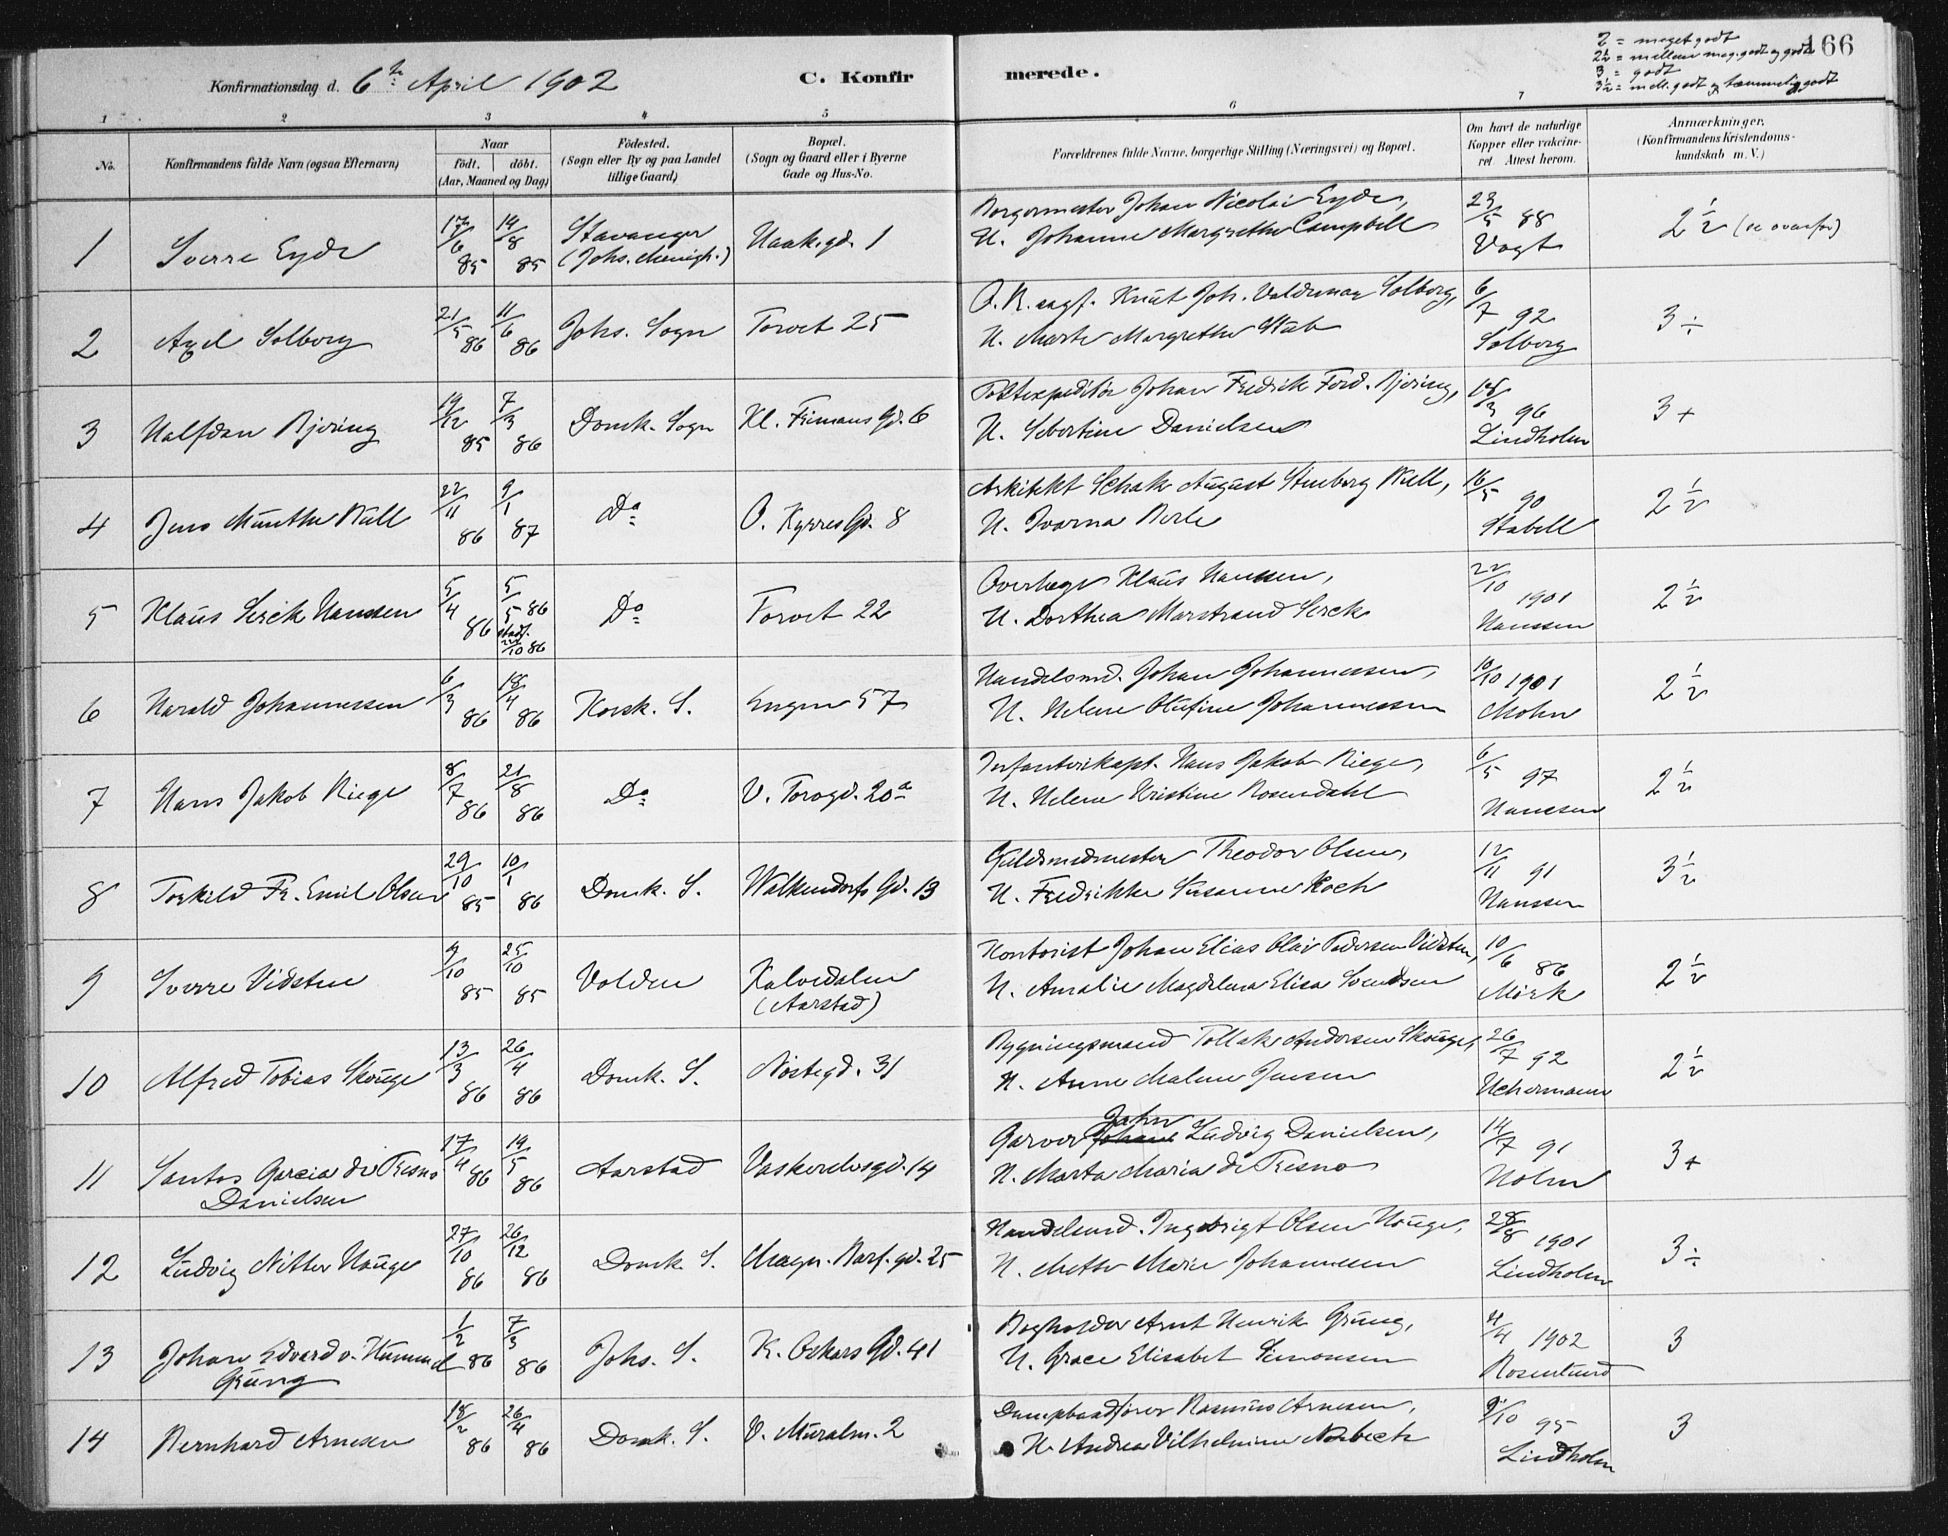 Konfirmationsdag d. 6te April 1902 C. Konfirmerede. 166
2 = meget godt
2½ = mellem meg. godt og godt
3 = godt
3½ = mell. godt og temmelig godt
1 2 3 4 5 6 7
No. Konfirmandens fulde Navn (ogsaa Efternavn)
Naar födt. döbt. (Aar, Maaned og Dag)
Födested. (Sogn eller By og paa Landet tillige Gaard)
Bopæl. (Sogn og Gaard eller i Byerne Gade og Hus-No.
Forældrenes fulde Navne, borgerlige Stilling (Næringsvei) og Bopæl.
Om havt de naturlige Kopper eller vakcineret. Attest herom.
Anmærkninger. (Konfirmandens Kristendomskundskab m. V.)
1 Sverre Eyde 17/6 85 14/8 85 Stavanger (Johs. Menigh.) Haakgd. 1 Borgermester Johan Nicolai Eyde, H. Johanne Margrethe Campbell 23/5 88 Vogt 2½ (se ovenfor)
2 Axel Solberg 21/5 86 11/6 86 Johs. Sogn Torvet 25 O.R.sagf. Knut Joh. Valdemar Solberg, H. Marte Margrethe Stub 6/7 92 Solberg 3÷
3 Halfdan Bjering 19/12 85 7/3 86 Domk. Sogn Kl. Frimans Gd. 6 Postexpeditør Johan Fredrik Ferd. Bjering, H. Severtine Danielsen 18/3 96 Lindholm 3+
4 Jens Munthe Bull 22/11 86 9/1 87 Do O. Kyrres Gd. 8 Arkitekt Schak August Steenberg Bull, H. Ivarna Berle 16/5 90 Stabell 2½
5 Klaus Serck Hanssen 5/4 86 5/5 86 stadf. 22/10 86 Do Torvet 22 Overlæge Klaus Hanssen, H. Dorthea Marstrand Serck 22/10 1901 Hanssen 2½
6 Harald Johannessen 6/3 86 18/4 86 Korsk. S. Engen 57 Handelsmd. Johan Johannessen, H. Helene Olufine Johannessen 10/10 1901 Mohn 2½
7 Hans Jakob Riege 8/7 86 21/8 86 Do V. Torvgd. 20a Infanterikapt. Hans Jakob Riege, H. Helene Kristine Rosendahl 6/5 97 Hanssen 2½
8 Torkild Fr. Emil Olsen 29/10 85 10/1 86 Domk. S. Walkendorfs Gd. 13 Guldsmedmester Theodor Olsen, H. Fredrikke Susanne Koch 12/11 91 Hanssen 3½
9 Sverre Vidsteen 9/10 85 25/10 85 Volden Kalvedalen (Aarstad) Kontorist Johan Elias Olai Pedersen Vidsteen, H. Amalie Magdalena Elisa Svendsen 10/6 86 Mørk 2½
10 Alfred Tobias Skouge 13/3 86 26/4 86 Domk. S. Nøstegd. 31 Bygningsmand Tollak Andersen Skouge, H. Anne Malene Jensen 26/7 92 Uchermann 2½
11 Santos Garcia de Fresno Danielsen 17/4 86 19/5 86 Aarstad Vaskerelvsgd. 14 Garver Jahn Ludvig Danielsen, H. Marta Maria de Fresno 14/7 91 Holm 3+
12 Ludvig Nitter Hauge 27/10 86 26/12 86 Domk. S. Magn. Barf. gd. 25 Handelsmd. Ingebrigt Olsen Hauge, H. Mette Marie Johannesen 28/8 1901 Lindholm 3÷
13 Johan Edvard v. Hummel Grung 1/2 86 7/3 86 Johs. S. K. Oskars Gd. 41 Bogholder Arnt Henrik Grung, H. Grace Elisabet Simonsen 4/4 1902 Rosenlund 3
14 Bernhard Arnesen 18/2 86 26/4 86 Domk. S. V. Muralm. 2 Dampbaadfører Rasmus Arnesen, H. Andrea Vilhelmine Norbech 9/10 95 Lindholm 3